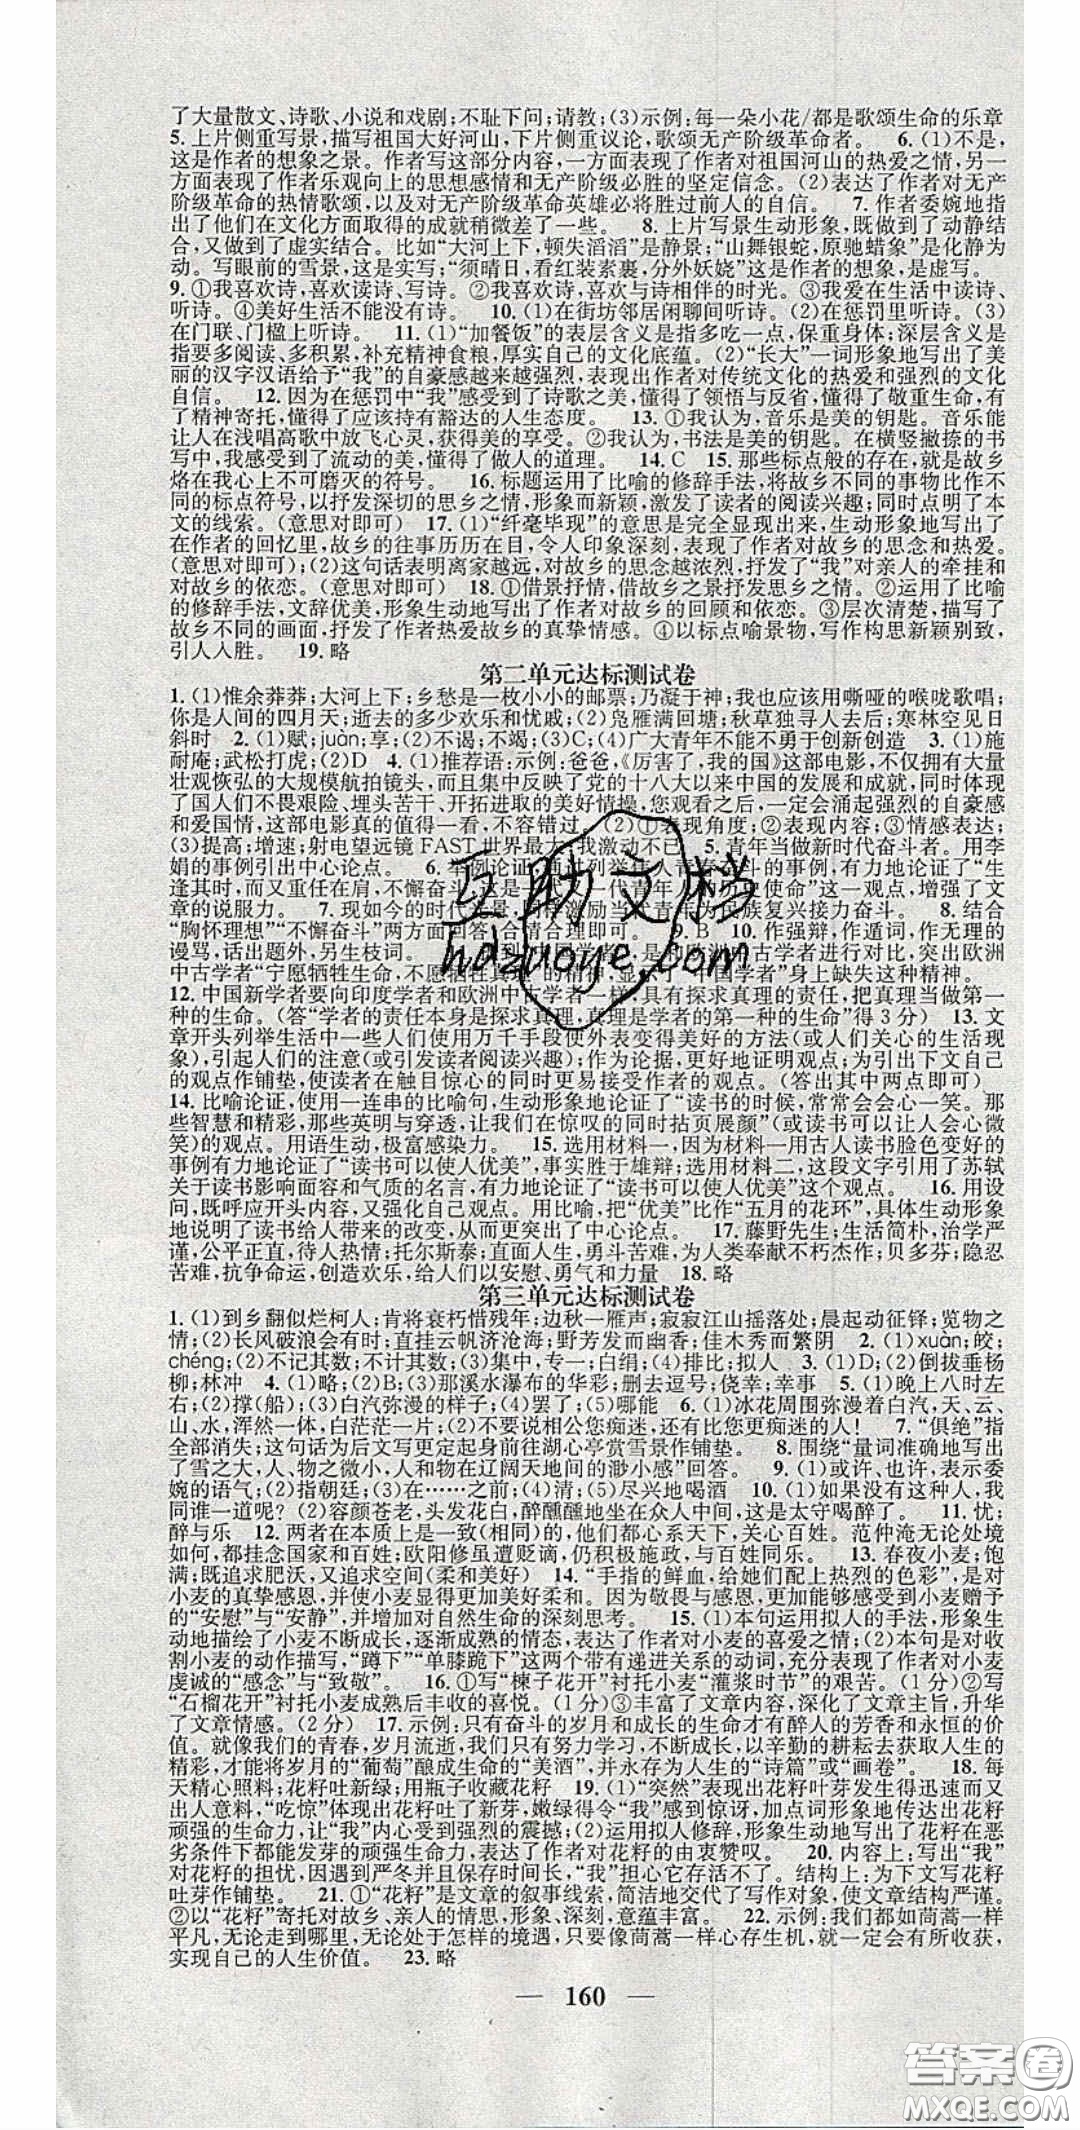 了大量散文、诗歌、小说和戏剧;不耻下问;请教;(3)示例:每一朵小花/都是歌颂生命的乐章
5. 上片侧重写景,描写祖国大好河山,下片侧重议论,歌颂无产阶级革命者。 6. (1)不是,
这是作者的想象之景。作者写这部分内容,一方面表现了作者对祖国河山的热爱之情,另一
方面表现了作者乐观向上的思想感情和无产阶级必胜的坚定信念。(2)表达了作者对无产
阶级革命的热情歌颂,以及对无产阶级革命英雄必将胜过前人的自信。 7. 作者委婉地指
出了他们在文化方面取得的成就稍微差了一些。 8. 上片写景生动形象,既做到了动静结
合,又做到了虚实结合。比如“大河上下,顿失滔滔”是静景;“山舞银蛇,原驰蜡象”是化静为
动。写眼前的雪景,这是实写;“须晴日,看红装素裹,分外妖娆”这是作者的想象,是虚写。
9. ①我喜欢诗,喜欢读诗、写诗。②我喜欢诗,喜欢与诗相伴的时光。③我爱在生活中读诗、
听诗。④美好生活不能没有诗。 10. (1)在街坊邻居闲聊间听诗。(2)在惩罚里听诗。(3)
在门联、门楹上听诗。 11. (1)“加餐饭”的表层含义是指多吃一点,保重身体;深层含义是
指要多阅读、多积累,补充精神食粮,厚实自己的文化底蕴。(2)“长大”一词形象地写出了美
丽的汉字汉语给予“我”的自豪感越来越强烈,表现出作者对传统文化的热爱和强烈的文化
自信。 12. 因为在惩罚中“我”感受到了诗歌之美,懂得了领悟与反省,懂得了敬重生命,有
了精神寄托,懂得了应该持有豁达的人生态度。 13. ①我认为,音乐是美的钥匙。音乐能
让人在浅唱高歌中放飞心灵,获得美的享受。②我认为,书法是美的钥匙。在横竖撇捺的书
写中,我感受到了流动的美,懂得了做人的道理。 14. C 15. 那些标点般的存在,就是故乡
烙在我心上不可磨灭的符号。 16. 标题运用了比喻的修辞手法,将故乡不同的事物比作不
同的标点符号,以抒发深切的思乡之情,形象而新颖,激发了读者的阅读兴趣;同时点明了本
文的线索。(意思对即可) 17. (1)“纤毫毕现”的意思是完全显现出来,生动形象地写出了
在作者的回忆里,故乡的往事历历在目,令人印象深刻,表现了作者对故乡的思念和热爱。
(意思对即可);(2)这句话表明离家越远,对故乡的思念越浓烈,抒发了“我”对亲人的牵挂和
对故乡的依恋。(意思对即可) 18. ①借景抒情,借故乡之景抒发思乡之情。②运用了比喻
的修辞手法,文辞优美,形象生动地写出了作者对故乡的回顾和依恋。③层次清楚,描写了
故乡不同的画面,抒发了作者热爱故乡的真挚情感。④以标点喻景物,写作构思新颖别致,
引人入胜。 19. 略
第二单元达标测试卷
1. (1)惟余莽莽;大河上下;乡愁是一枚小小的邮票;乃凝于神;我也应该用嘶哑的喉咙歌唱;
你是人间的四月天;逝去的多少欢乐和忧戚;(2)凫雁满回塘;秋草独寻人去后;寒林空见日
斜时 2. (1)赋;juàn;享;(2)不谒;不竭;(3)C;(4)广大青年不能不勇于创新创造 3. (1)施
耐庵;武松打虎;(2)D 4. (1)推荐语:示例:爸爸,《厉害了,我的国》这部电影,不仅拥有大量
壮观恢弘的大规模航拍镜头,而且集中反映了党的十八大以来中国的发展和成就,同时体现
了国人们不畏艰险、埋头苦干、开拓进取的美好情操,您观看之后,一定会涌起强烈的自豪感
和爱国情,这部电影真的值得一看,不容错过。(2)①表现角度;②表现内容;③表现方法;
(3)提高;增速;射电望远镜FAST世界最大;我激动不已 5. 青年当做新时代奋斗者。用李
娟的事例引出中心论点。 6. 举例论证,通过列举伟人青春奋斗的事例,有力地论证了“生
逢其时而又重任在肩,不懈奋斗,这是一代一代青年人的历史使命”这一观点,增强了文
章的说服力。 7. 现如今的时代光景,同样激励当代青年为民族复兴接力奋斗。 8. 结合
“胸怀理想”“不懈奋斗”两方面回答,合情合理即可。 9. B 10. 作强辩,作遁词,作无理的
谩骂,话出题外,另生枝词。 11. 提到“中国学者”,是和欧洲中古学者进行对比,突出欧洲
中古学者“宁愿牺牲生命,不愿牺牲真理”的精神,显示了“中国学者”身上缺失这种精神。
12. 中国新学者要向印度学者和欧洲中古学者一样,具有探求真理的责任,把真理当做第一
种的生命。(答“学者的责任本身是探求真理,真理是学者的第一种的生命”得3分) 13. 文
章开头列举生活中一些人们使用万千手段使外表变得美好的方法(或人们关心的生活现
象),引起人们的注意(或引发读者阅读兴趣);作为论据,更好地证明观点;为引出下文自己
的观点作铺垫,使读者在触目惊心的同时更易接受作者的观点。(答出其中两点即可)
14. 比喻论证,使用一连串的比喻句,生动形象地论证了“读书的时候,常常会会心一笑。那
些智慧和精彩,那些英明与穿透,让我们在惊叹的同时拈页展颜”(或读书可以让人会心微
笑)的观点。用语生动,极富感染力。 15. 选用材料一,因为材料一用古人读书脸色变好的
事例有力地论证了“读书可以使人优美”,事实胜于雄辩;选用材料二,这段文字引用了苏轼
关于读书影响面容和气质的名言,有力地论证了“读书可以使人优美”这个观点。 16. 用设
问,既呼应开头内容,又强化自己观点。用比喻,把“优美”比作“五月的花环”,具体生动形象
地说明了读书给人带来的改变,从而更突出了中心论点。 17. 藤野先生;生活简朴,治学严
谨,公平正直,待人热情;托尔斯泰;直面人生,勇斗苦难,为人类奉献不朽杰作;贝多芬;隐忍
苦难,抗争命运,创造欢乐,给人们以安慰、勇气和力量 18. 略
第三单元达标测试卷
1. (1)到乡翻似烂柯人;肯将衰朽惜残年;边秋一雁声;寂寂江山摇落处;晨起动征铎;览物之
情;(2)长风破浪会有时;直挂云帆济沧海;野芳发而幽香;佳木秀而繁阴 2. (1)xuàn;皎;
chéng;(2)不记其数;不计其数;(3)集中,专一;白绢;(4)排比;拟人 3. (1)D;(2)倒拔垂杨
柳;林冲 4. (1)略;(2)B;(3)那溪水瀑布的华彩;删去逗号;侥幸;幸事 5. (1)晚上八时左
右;(2)撑(船);(3)白汽弥漫的样子;(4)罢了;(5)哪能 6. (1)冰花周围弥漫着白汽,天、云、
山、水,浑然一体,白茫茫一片;(2)不要说相公您痴迷,还有比您更痴迷的人! 7. “俱绝”指
全部消失;这句话为后文写更定起身前往湖心亭赏雪景作铺垫。 8. 围绕“量词准确地写出
了雪之大,人、物之微小,人和物在辽阔天地间的渺小感”回答。 9. (1)或许、也许,表示委
婉的语气;(2)指朝廷;(3)在……之前;(4)清;(5)尽兴地喝酒 10. (1)如果没有这种人,我
同谁一道呢?(2)容颜苍老,头发花白,醉醺醺地坐在众人中间,这是太守喝醉了。 11. 忧;
醉与乐 12. 两者在本质上是一致(相同)的,他们都心系天下,关心百姓。范仲淹无论处境
如何,都挂念国家和百姓;欧阳修虽遭贬谪,仍积极施政,与百姓同乐。 13. 春夜小麦;饱
满;既追求肥沃,又追求空间(柔和美好) 14. “手指的鲜血,给她们配上热烈的色彩”,是对
小麦的真挚感恩,并使得小麦显得更加美好柔和。因为敬畏与感恩,更加能够感受小麦赠予
的“安慰”与“安静”,并增加对自然生命的深刻思考。 15. (1)本句运用拟人的手法,形象生
动地描绘了小麦不断成长,逐渐成熟的情态,表达了作者对小麦的喜爱之情;(2)本句是对收
割小麦的动作描写,“蹲下”“单膝跪下”这两个带有递进关系的动词,充分表现了作者对小麦
虔诚的“感念”与“致敬”。 16. ①写“楝子花开”衬托小麦“灌浆时节”的艰苦。(1分)②写
“石榴花开”衬托小麦成熟后丰收的喜悦。(1分)③丰富了文章内容,深化了文章主旨,升华
了文章情感。(2分) 17. 示例:只有奋斗的岁月和成长的生命才有醉人的芳香和永恒的价
值。就像我们的青春,岁月流逝,我们只有努力学习,不断成长,以辛勤的耕耘去获取人生的
精彩,才能将岁月的“葡萄”酿成生命的“美酒”,并永存为人生的“诗篇”或“画卷”。 18. 每
天精心照料;花籽吐新绿;用瓶子收藏花籽 19. (1)“突然”表现出花籽叶芽发生得迅速而又
出人意料,“吃惊”体现出花籽吐了新芽,嫩绿得令“我”感到惊讶,加点词形象地传达出花籽
顽强的生命力,让“我”内心受到强烈的震撼;(2)运用拟人修辞,形象生动地写出了花籽在恶
劣条件下都能发芽的顽强生命力,表达了作者对花籽的由衷赞叹。 20. 内容上:写出“我”
对花籽的担忧,因遇到严冬并且保存时间长,“我”担心它存活不了。结构上:为下文写花籽
吐芽作铺垫。 21. ①“花籽”是文章的叙事线索,简洁地交代了写作对象,使文章结构严谨。
②以“花籽”寄托对故乡、亲人的情思,形象、深刻,意蕴丰富。 22. 示例:我们都如茼蒿一样
平凡,无论走到哪里,无论处于怎样的境遇,只要像茼蒿一样心存生机,就一定会有所收获,
实现自己的人生价值。 23. 略
— 160 —
互助文档
hdzuoye.com
答案圈
MXQE.COM